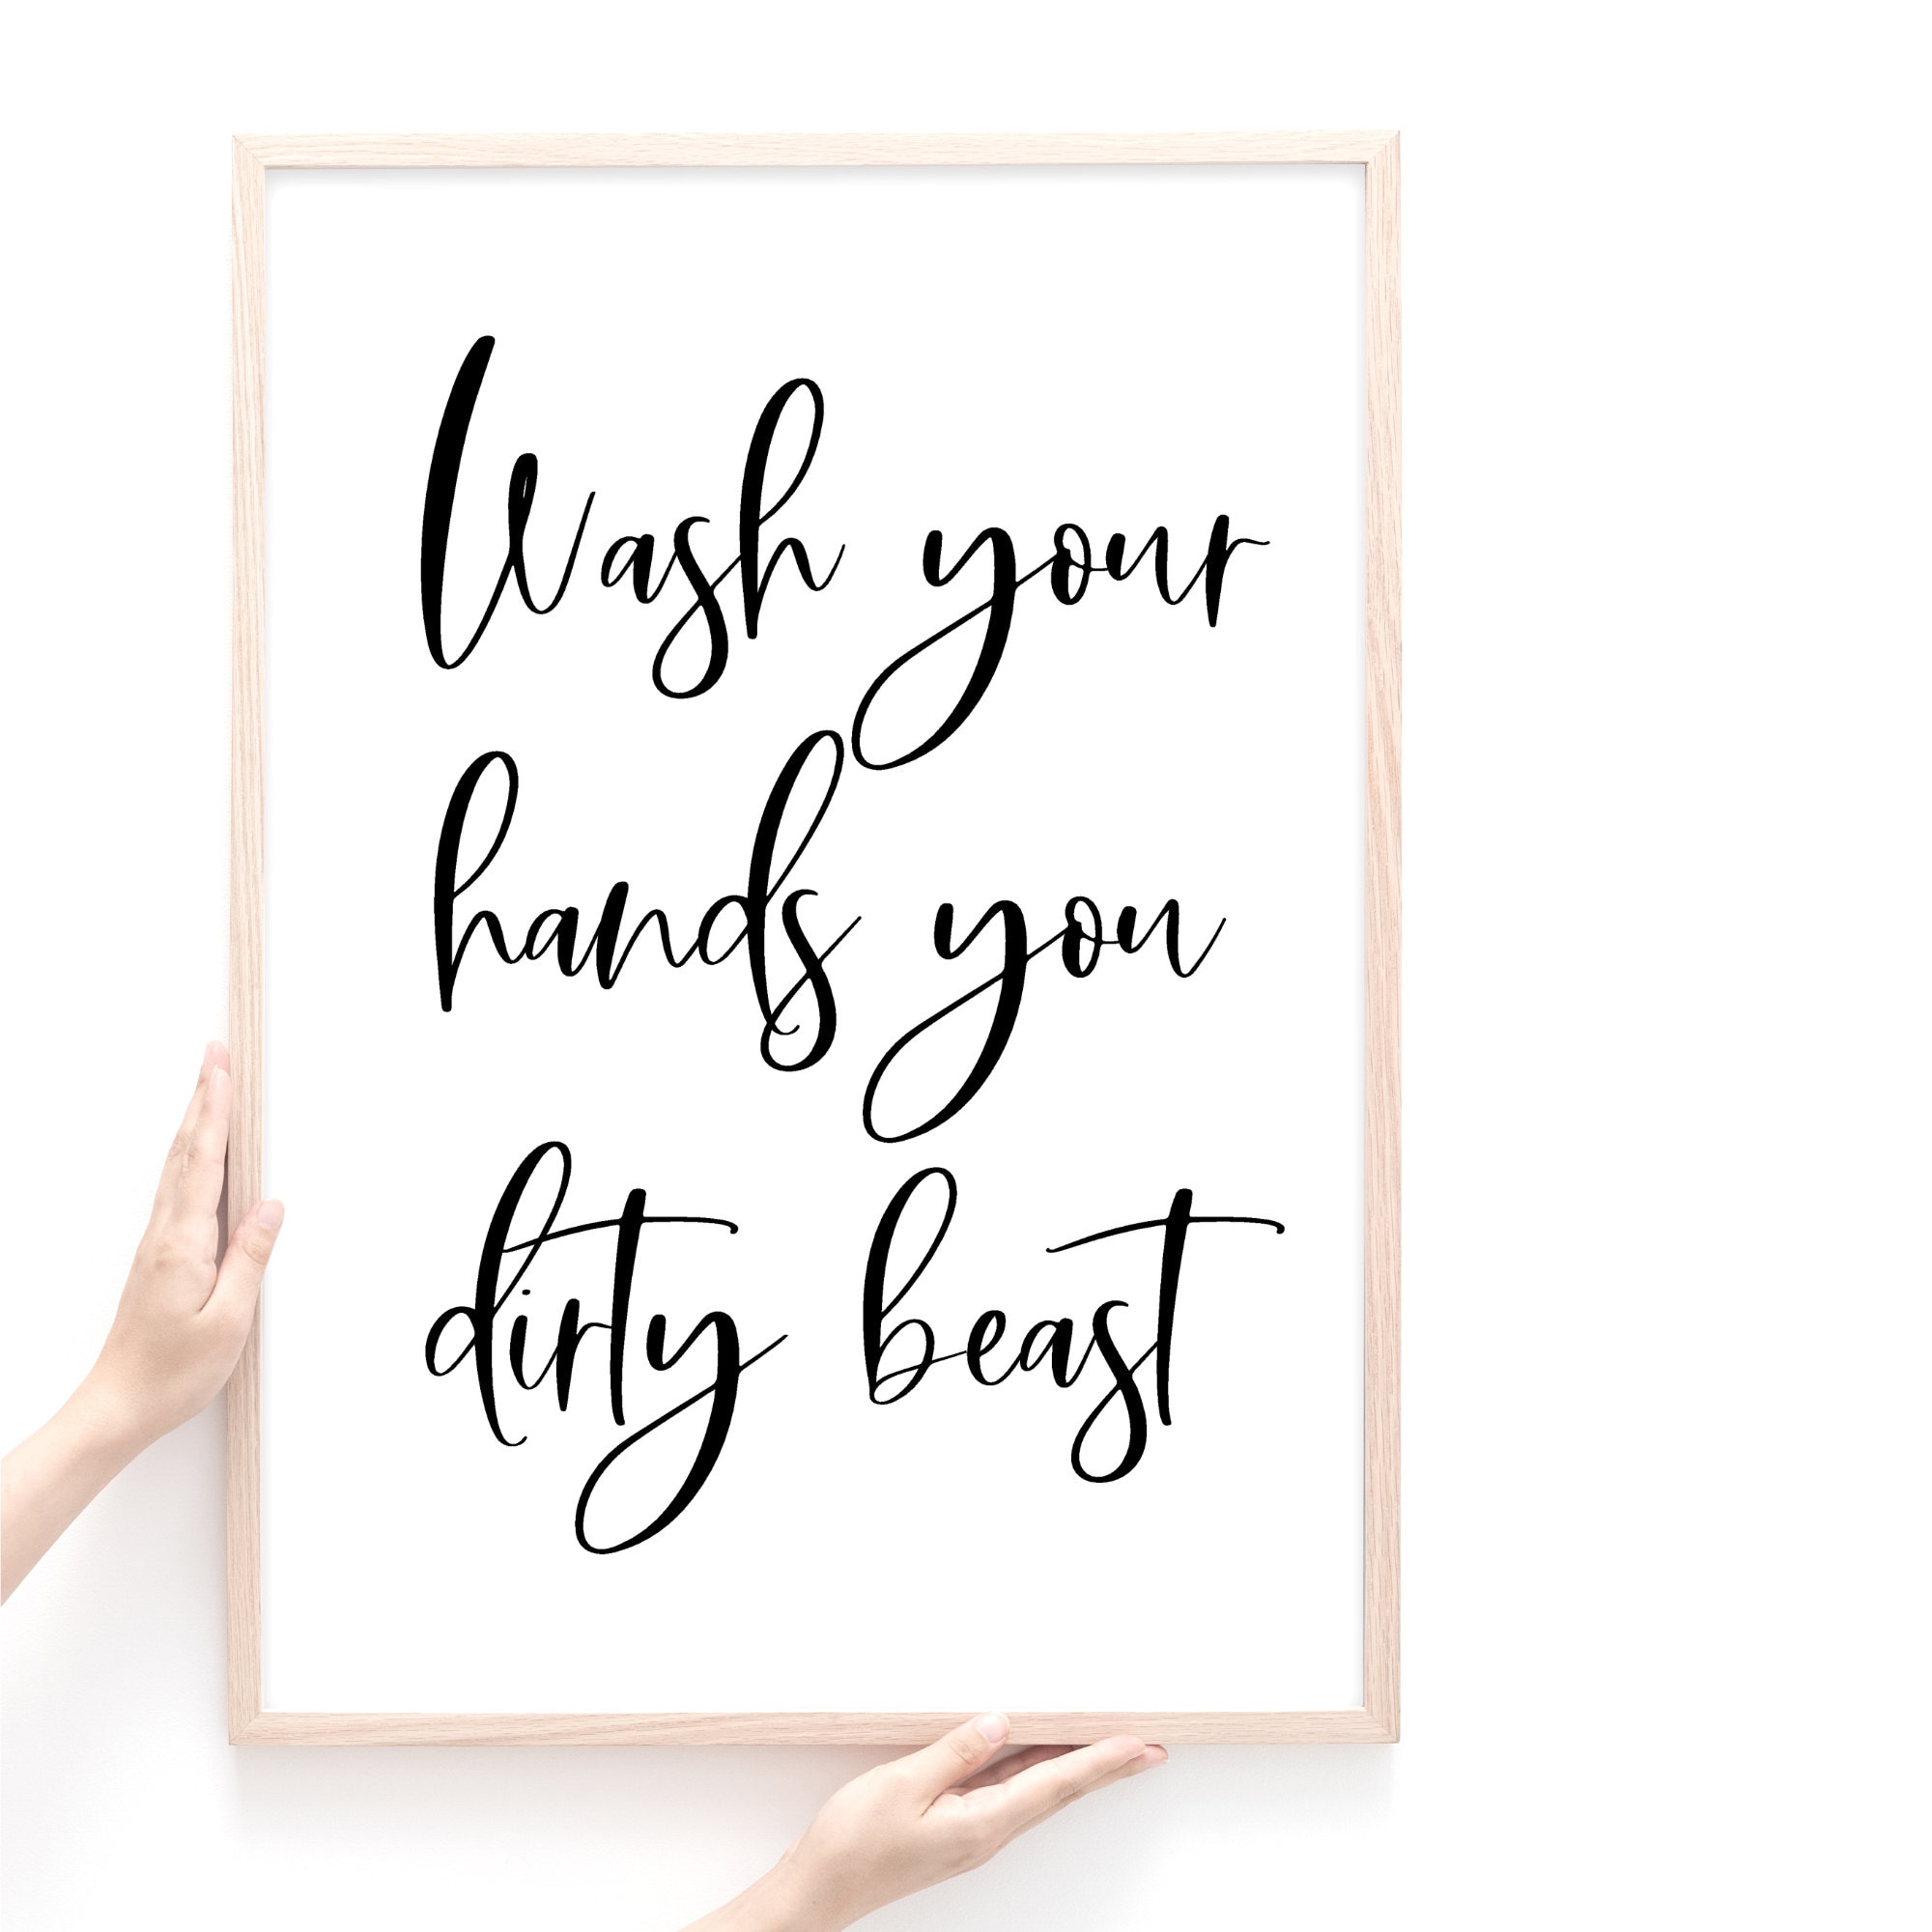 Wash your
hands you
dirty beast